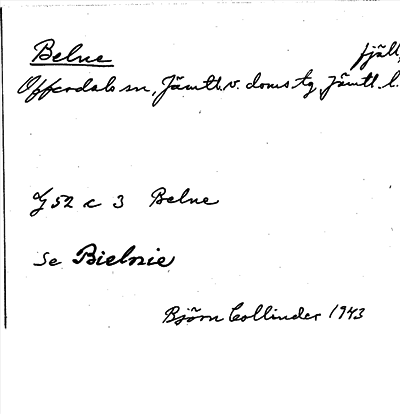 Belne fjäll,
Offerdals sn, Jämtl. v. doms tg, Jämtl. l.
J 52 c 3 Belne
Se Bielnie
Björn Collinder 1943